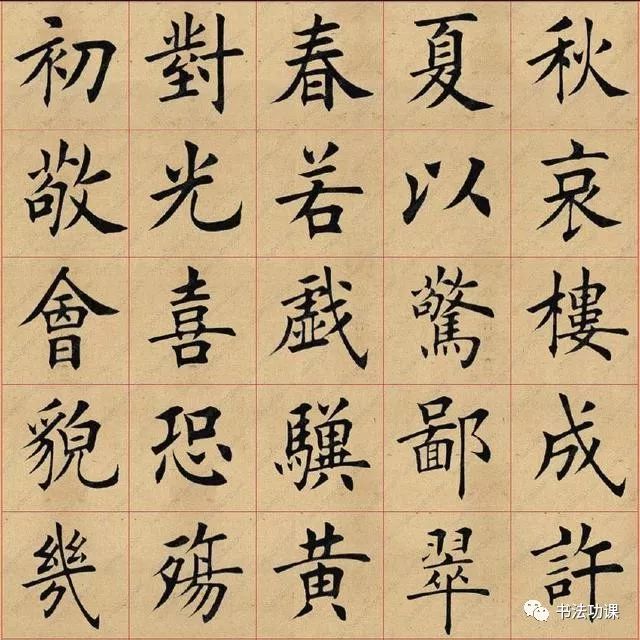 初對春夏秋
敬光若以哀
會喜戯驚樓
貌恐驥鄙成
幾殤黃翠許
书法功课